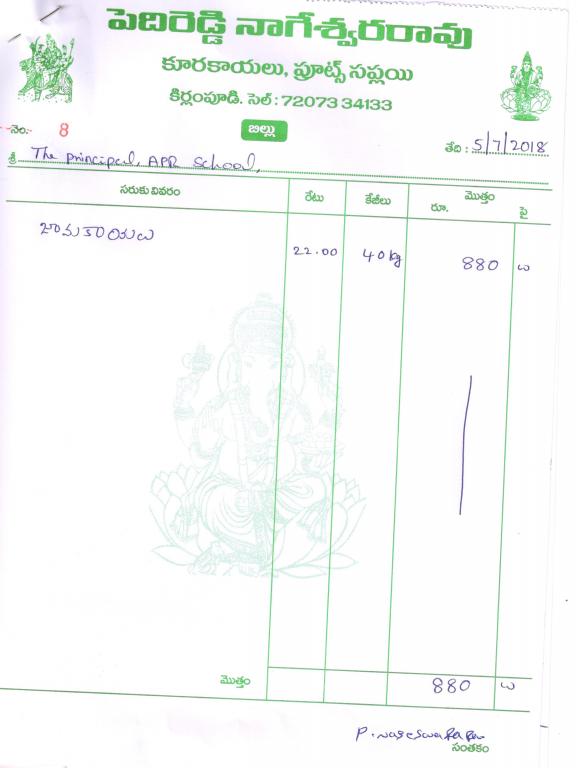 పెదిరెడ్డి నాగేశ్వరరావు
కూరకాయలు, ఫ్రూట్స్ సప్లయి
కిర్లంపూడి. సెల్ : 72073 34133
నెం:- 8
బిల్లు
తేది : 5/7/2018
శ్రీ The principal, APR School,
సరుకు వివరం రేటు కేజీలు మొత్తం
రూ. పై
జామకాయలు 22.00 40 kg 880 ω
మొత్తం 880 ω
P. Nageswara Rao
సంతకం